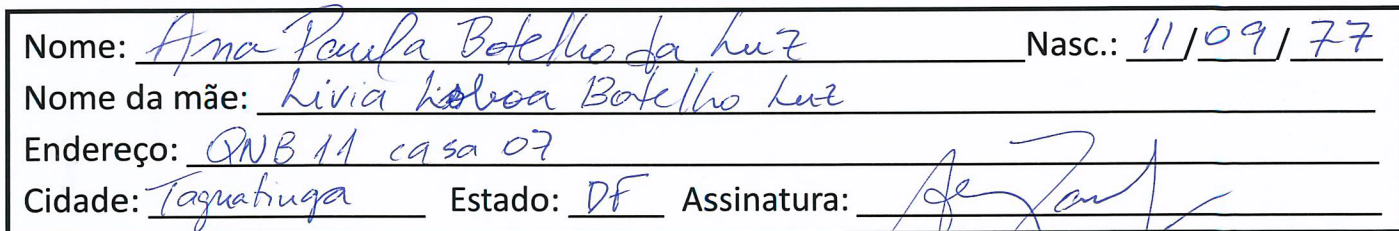 Nome: Ana Paula Botelho da Luz Nasc.: 11/09/77
Nome da mãe: Livia Lisboa Botelho Luz
Endereço: QNB 11 casa 07
Cidade: Taguatinga Estado: DF Assinatura: